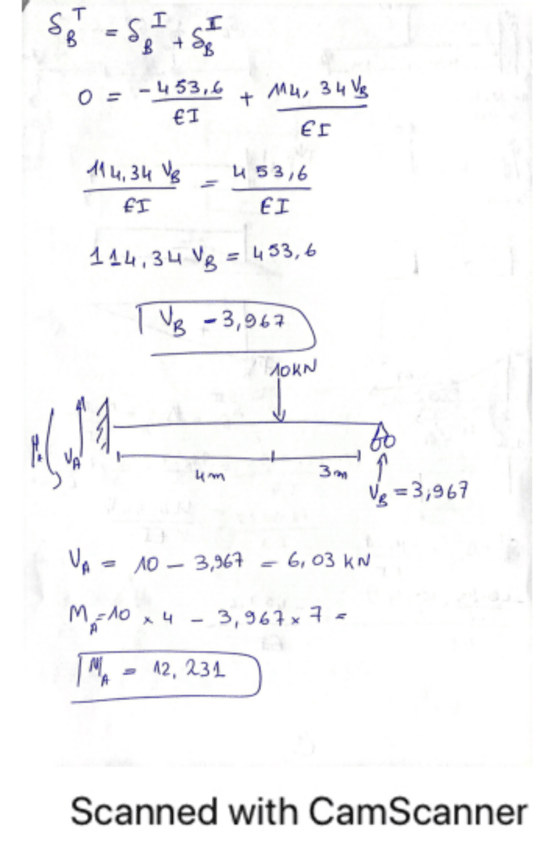 δ_B^T = δ_B^I + δ_B^I
0 = -453,6/EI + 114,34 V_B/EI
114,34 V_B/EI = 453,6/EI
114,34 V_B = 453,6
V_B - 3,967
10KN
V_A
4m 3m
V_B = 3,967
V_A = 10 - 3,967 = 6,03 KN
M_A = 10 x 4 - 3,967 x 7 =
M_A = 12,231
Scanned with CamScanner